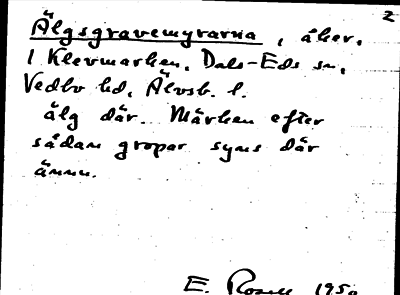 2
Älgsgravemyrarna, åker.
1 Klevmarken, Dals-Eds sn,
Vedbo hd, Älvsb. l.
älg där. Märken efter
sådan gropar syns där
ännu.
E. Rosell 1950